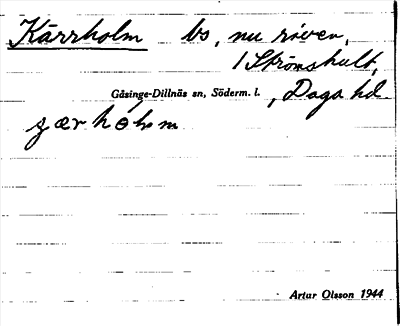 Kärrholm bs, nu riven,
/ Strömshult,
Gåsinge-Dillnäs sn, Söderm. l. , Daga hd
Artur Olsson 1944